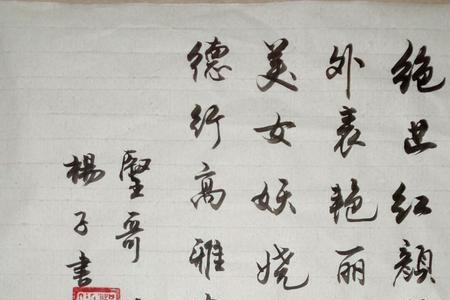 绝世红颜
外表艳丽
美女妖娆
德行高雅
哥
楊子書